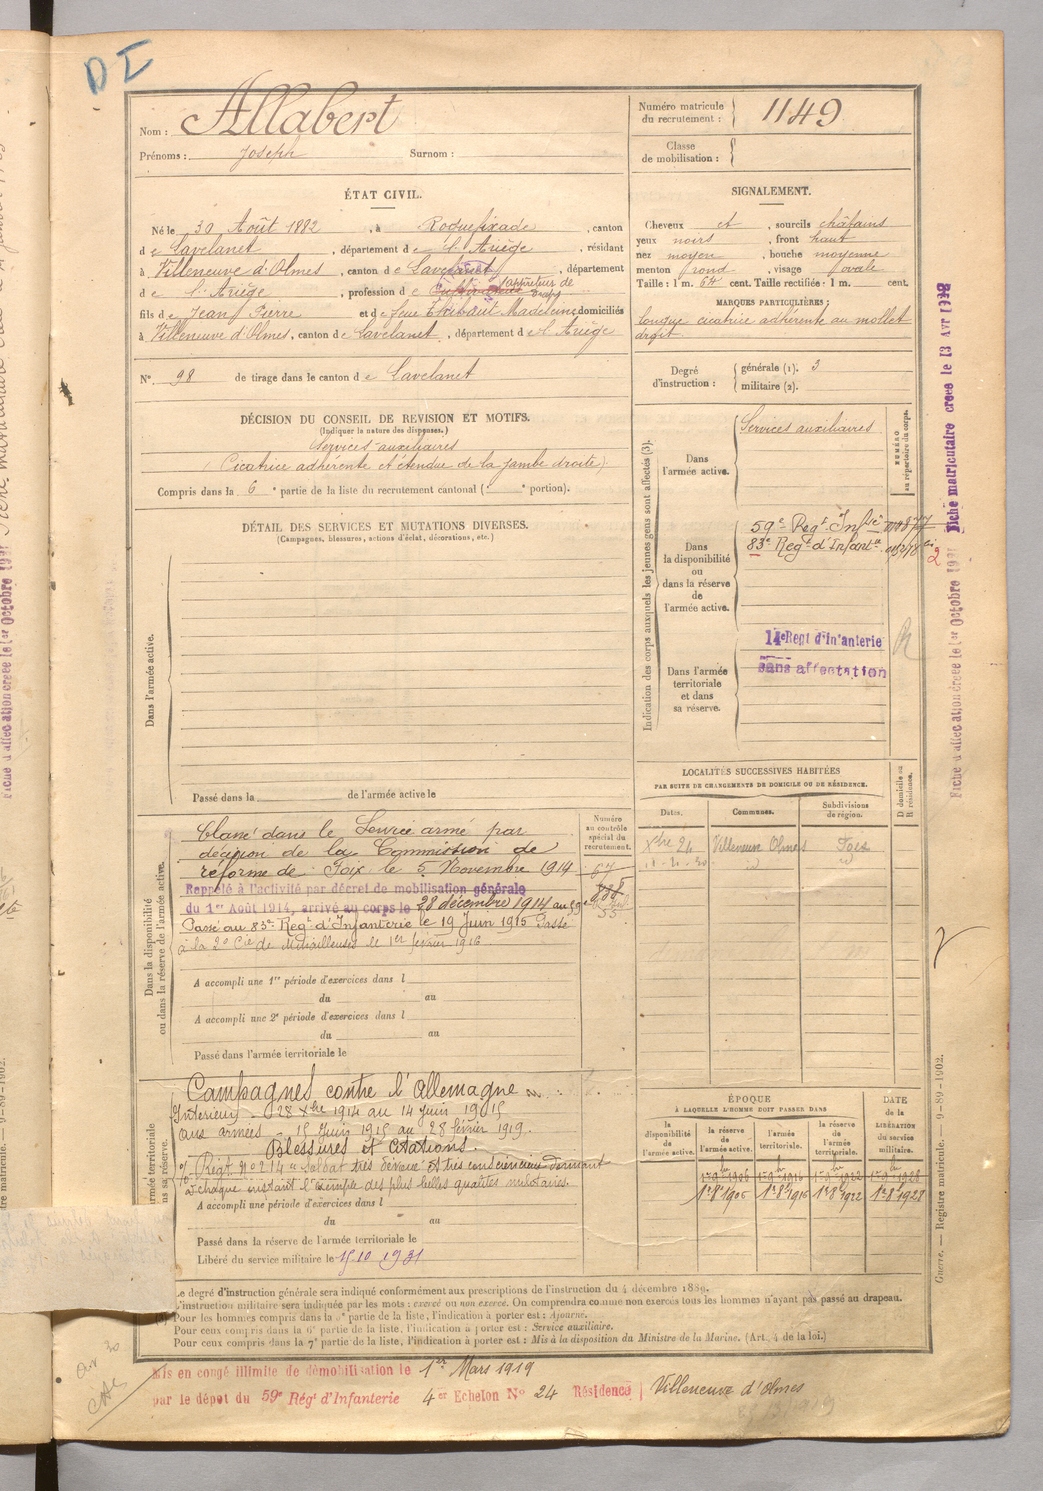 DI
Nom : Allabert
Prénoms : Joseph Surnom :
Numéro matricule du recrutement : 1149
Classe de mobilisation :
ÉTAT CIVIL.
Né le 30 Août 1882, à Roquefixade, canton
de Lavelanet, département de l'Ariège, résidant
à Villeneuve d'Olmes, canton de Lavelanet, département
de l'Ariège, profession de Cultivateur apprêteur de draps
fils de Jean Pierre et de feue Thibaut Madeleine domiciliés
à Villeneuve d'Olmes, canton de Lavelanet, département de l'Ariège
N° 98 de tirage dans le canton de Lavelanet
SIGNALEMENT.
Cheveux et, sourcils châtains
yeux noirs, front haut
nez moyen, bouche moyenne
menton rond, visage ovale
Taille : 1 m. 64 cent. Taille rectifiée : 1 m. cent.
MARQUES PARTICULIÈRES :
longue cicatrice adhérente au mollet
droit
Degré d'instruction : générale (1). 3
militaire (2).
DÉCISION DU CONSEIL DE REVISION ET MOTIFS.
(Indiquer la nature des dispenses.)
Services auxiliaires
Cicatrice adhérente et étendue de la jambe droite)
Compris dans la 6e partie de la liste du recrutement cantonal ( e portion).
DÉTAIL DES SERVICES ET MUTATIONS DIVERSES.
(Campagnes, blessures, actions d'éclat, décorations, etc.)
Dans l'armée active.
Passé dans la de l'armée active le
Indication des corps auxquels les jeunes gens sont affectés (3).
NUMÉRO au répertoire du corps.
Dans l'armée active. Services auxiliaires
Dans la disponibilité ou dans la réserve de l'armée active.
59e Régt Infie
83e Régt d'Infantie
2
Dans l'armée territoriale et dans sa réserve.
14e Regt d'Infanterie
Sans affectation
LOCALITÉS SUCCESSIVES HABITÉES
PAR SUITE DE CHANGEMENTS DE DOMICILE OU DE RÉSIDENCE.
Dates. Communes. Subdivisions de région. D domicile ou R résidence.
Xbre 24 Villeneuve Olmes Foix
id id
Dans la disponibilité ou dans la réserve de l'armée active.
Numéro au contrôle spécial du recrutement.
Classé dans le Service armé par
décision de la Commission de
réforme de Foix le 5 Novembre 1914
Rappelé à l'activité par décret de mobilisation générale
du 1er Août 1914, arrivé au corps le 28 décembre 1914 au 59e
Passé au 83e Régt d'Infanterie le 19 Juin 1915 Passé
à la 2e Cie de Mitrailleuses le 1er février 1916
67
A accompli une 1re période d'exercices dans l
du au
A accompli une 2e période d'exercices dans l
du au
Passé dans l'armée territoriale le
Campagnes contre l'Allemagne
Intérieur - 28 Xbre 1914 au 14 Juin 1915
aux armées - 15 Juin 1915 au 28 février 1919.
Blessures et Citations.
Régt n° 214 "Soldat très dévoué et très consciencieux donnant
à chaque instant l'exemple des plus belles qualités militaires.
A accompli une période d'exercices dans l
du au
Passé dans la réserve de l'armée territoriale le
Libéré du service militaire le 15 10 1931
ÉPOQUE
À LAQUELLE L'HOMME DOIT PASSER DANS
la disponibilité de l'armée active. la réserve de l'armée active. l'armée territoriale. la réserve de l'armée territoriale.
DATE de la LIBÉRATION du service militaire.
1er 8 1906 1er 8 1916 1er 8 1922 1er 8 1928
Le degré d'instruction générale sera indiqué conformément aux prescriptions de l'instruction du 4 décembre 1889.
L'instruction militaire sera indiquée par les mots : exercé ou non exercé. On comprendra comme non exercés tous les hommes n'ayant pas passé au drapeau.
Pour les hommes compris dans la 5e partie de la liste, l'indication à porter est : Ajourné.
Pour ceux compris dans la 6e partie de la liste, l'indication à porter est : Service auxiliaire.
Pour ceux compris dans la 7e partie de la liste, l'indication à porter est : Mis à la disposition du Ministre de la Marine. (Art. 4 de la loi.)
Mis en congé illimité de démobilisation le 1er Mars 1919
par le dépôt du 59e Régt d'Infanterie 4er Echelon N° 24 Résidence Villeneuve d'Olmes
Fiche d'affectation créée le 1er Octobre 1931
Fiche matriculaire créée le 13 Avr 1928
Guerre. — Registre matricule. — 9-89-1902.